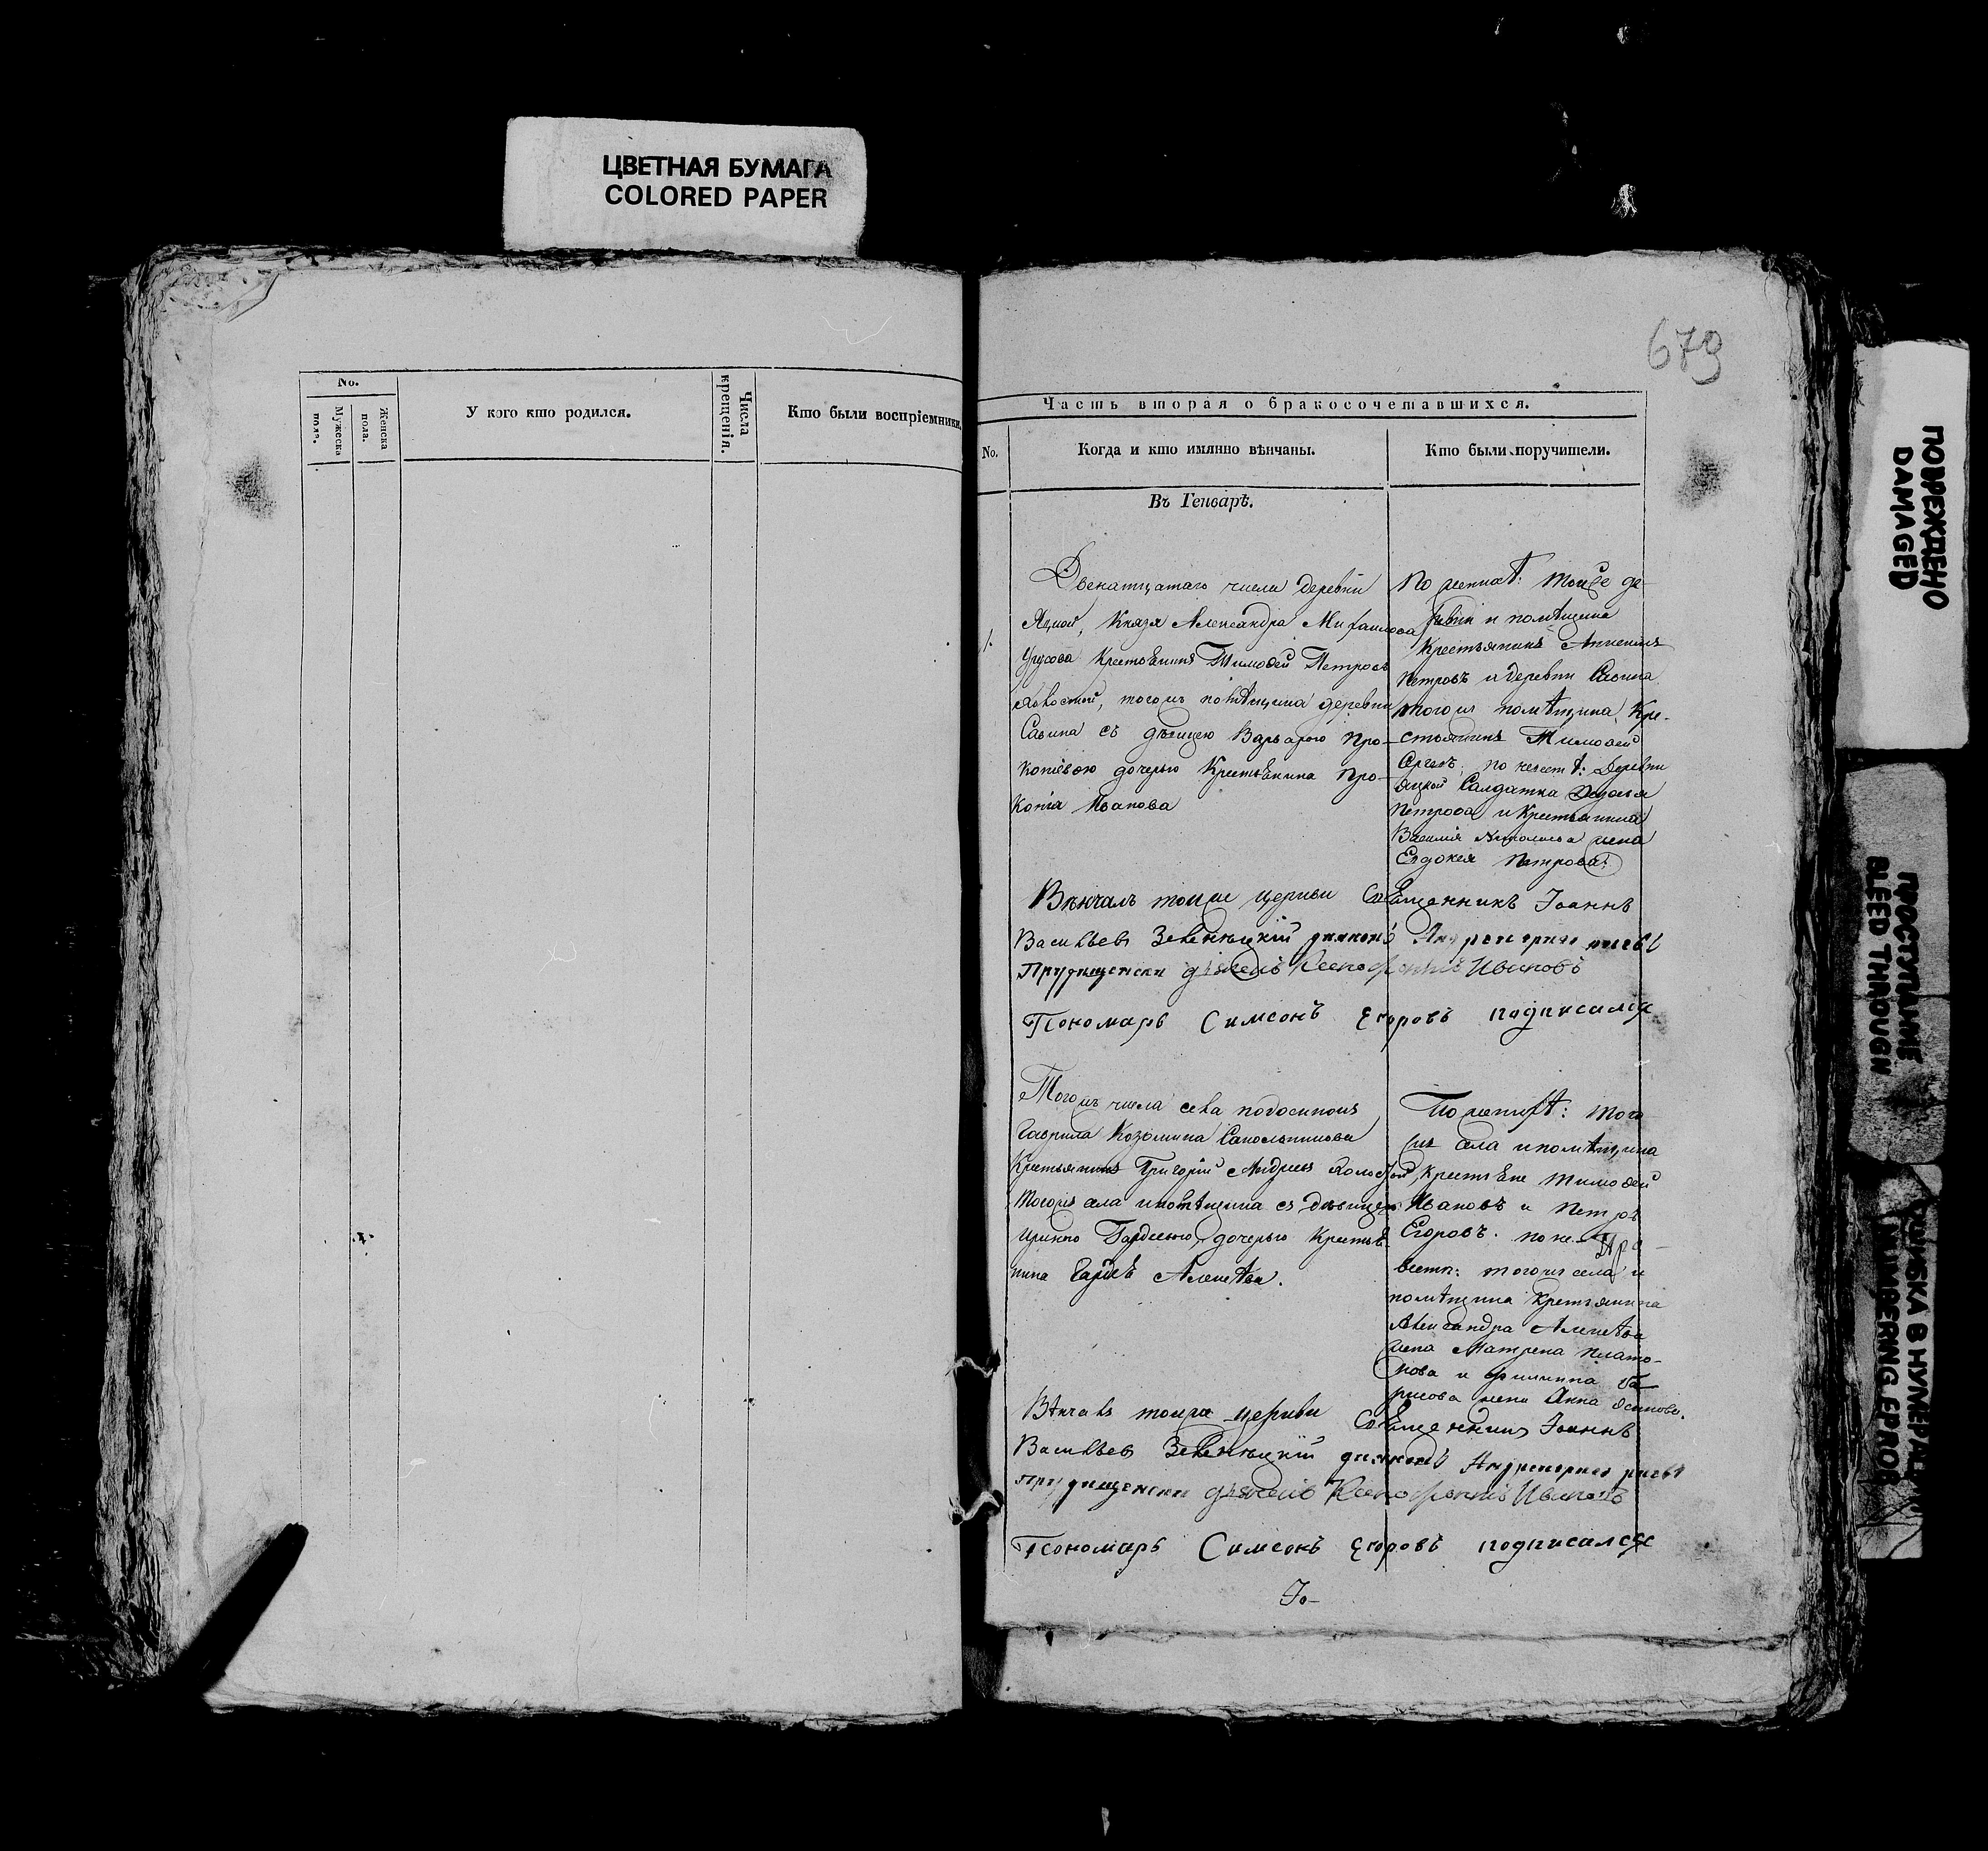 ЦВЕТНАЯ БУМАГА
COLORED PAPER
ПОВРЕЖДЕНО
DAMAGED
ПРОСТУПАНИЕ
BLEED THROUGH
ОШИБКА В НУМЕРАЦ
NUMBERING ERROR
No.
Мужеска пола.
Женска пола.
У кого кто родился.
Числа крещенія.
Кто были воспріемники.
679
Часть вторая о бракосочетавшихся.
No.
Когда и кто имянно вѣнчаны.
Кто были поручители.
Въ Генварѣ.
1.
Двенатцатаго числа деревни
Яцкой, Князя Александра Михаилова
Урусова крестьѣнинъ Тимофей Петровъ
тогожъ помѣщика деревни
Савина съ дѣвицею Варварою Про-
копіевою дочерью Крестьѣнина Про-
копія Иванова
По жених: тойже де-
ревни и помѣщика
крестьянинъ
Петровъ и деревни Савина
тогожъ помѣщика Кре-
стьянинъ Тимофей
по невест: Деревни
Яцкой Салдатка
Петрова и Крестьянина
Василія жена
Евдокея Петрова
Вѣнчалъ тойже церкви Свѣщенникъ Іоаннъ
Васильевъ Звенѣцкій диаконъ Андрей
дьячекъ Ксенофонтъ Ивановъ
Пономарь Симеонъ Егоровъ подписался
Тогожъ числа села
Гаврила Козмина
Крестьянинъ Григорій Андреевъ
тогожъ села и помѣщика съ дѣвицею
Ириною дочерью Крестьѣ-
нина Алексѣева.
По жених: того
жъ села и помѣщика
Крестьѣне Тимофей
Ивановъ и Петръ
Егоровъ. по не-
вести: тогожъ села и
помѣщика Крестьянина
Александра Алексѣева
жена Матрена Плато-
нова и Филиппа Ба-
рисова жена Анна Осипова.
Вѣнчалъ тойже церкви Свѣщенникъ Іоаннъ
Васильевъ Звенѣцкій диаконъ Андрей
дьячекъ Ксенофонтъ Ивановъ
Пономарь Симеонъ Егоровъ подписался
Іо-